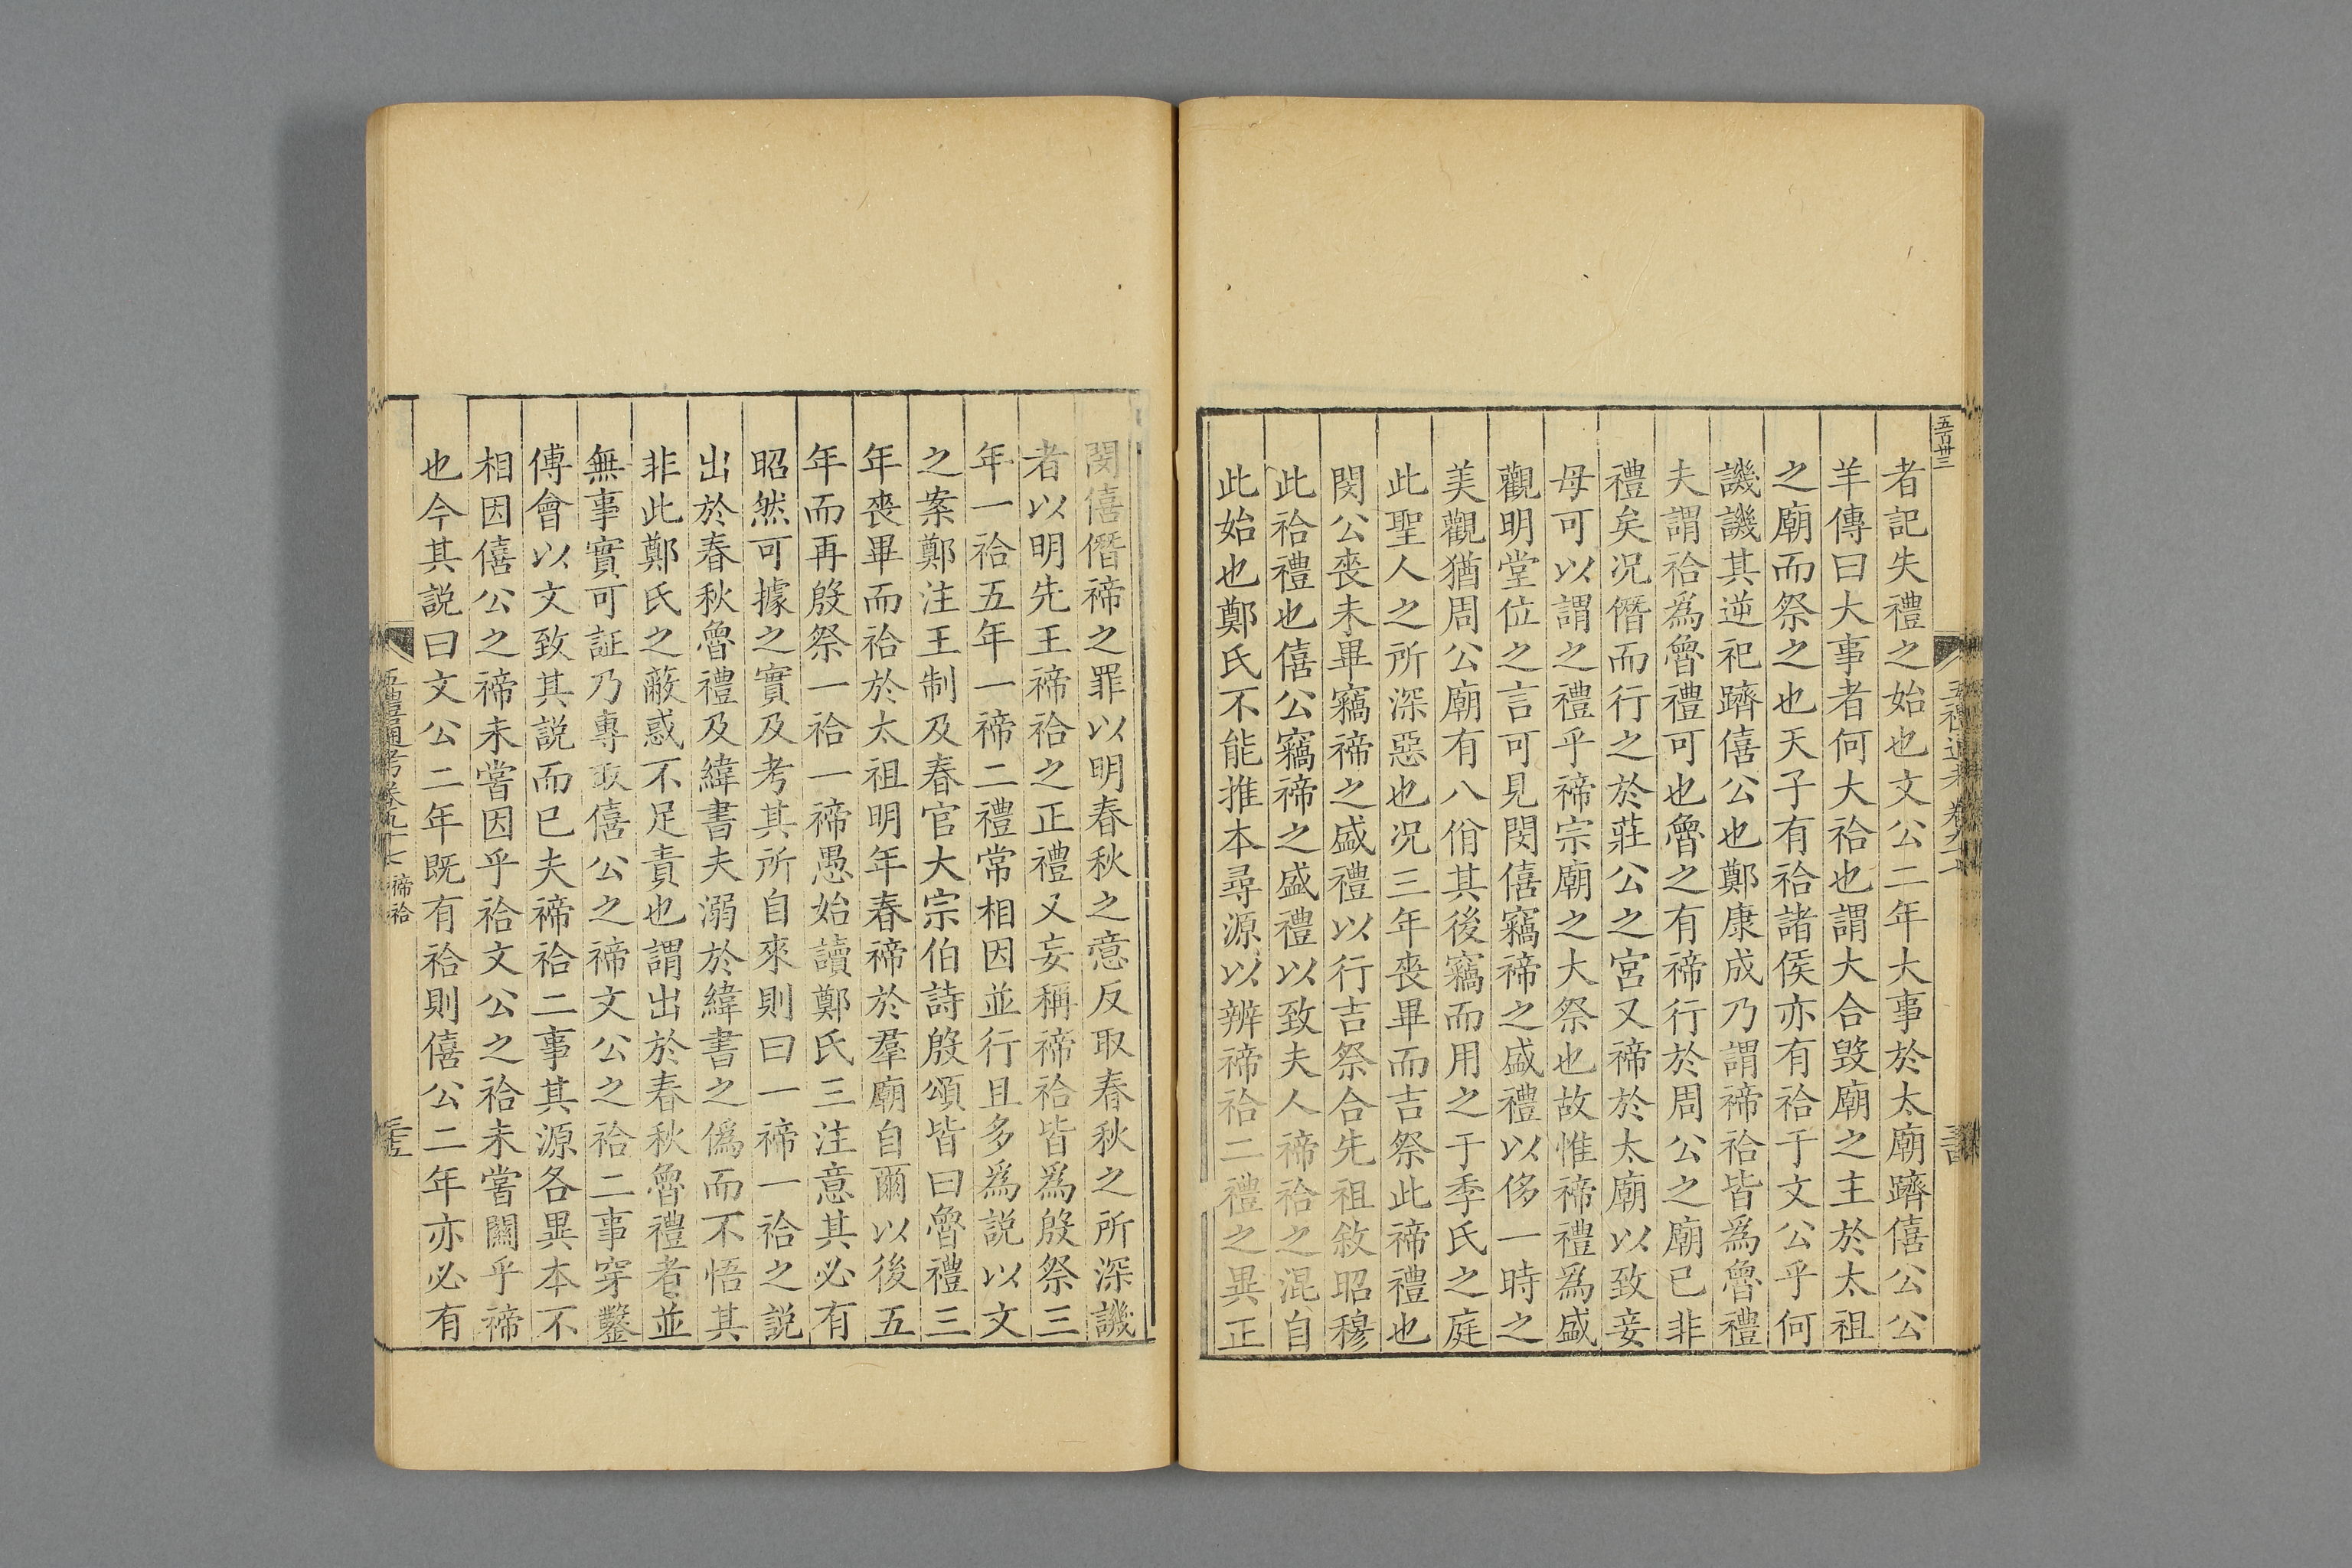 五百卅三
者記失禮之始也文公二年大事於太廟躋僖公公
羊傳曰大事者何大祫也謂大合毁廟之主於太祖
之廟而祭之也天子有祫諸侯亦有祫于文公乎何
譏譏其逆祀躋僖公也鄭康成乃謂禘祫皆爲魯禮
夫謂祫爲魯禮可也魯之有禘行於周公之廟已非
禮矣况僭而行之於莊公之宮又禘於太廟以致妾
母可以謂之禮乎禘宗廟之大祭也故惟禘禮爲盛
觀明堂位之言可見閔僖竊禘之盛禮以侈一時之
美觀猶周公廟有八佾其後竊而用之于季氏之庭
此聖人之所深惡也况三年喪畢而吉祭此禘禮也
閔公喪未畢竊禘之盛禮以行吉祭合先祖敘昭穆
此祫禮也僖公竊禘之盛禮以致夫人禘祫之混自
此始也鄭氏不能推本尋源以辨禘祫二禮之異正
閔僖僭禘之罪以明春秋之意反取春秋之所深譏
者以明先王禘祫之正禮又妄稱禘祫皆爲殷祭三
年一祫五年一禘二禮常相因並行且多爲説以文
之案鄭注王制及春官大宗伯詩殷頌皆曰魯禮三
年喪畢而祫於太祖明年春禘於羣廟自爾以後五
年而再殷祭一祫一禘愚始讀鄭氏三注意其必有
昭然可據之實及考其所自來則曰一禘一祫之説
出於春秋魯禮及緯書夫溺於緯書之僞而不悟其
非此鄭氏之蔽惑不足責也謂出於春秋魯禮者並
無事實可証乃專取僖公之禘文公之祫二事穿鑿
傅會以文致其説而已夫禘祫二事其源各異本不
相因僖公之禘未嘗因乎祫文公之祫未嘗關乎禘
也今其説曰文公二年既有祫則僖公二年亦必有
五禮通考卷九十七 禘祫